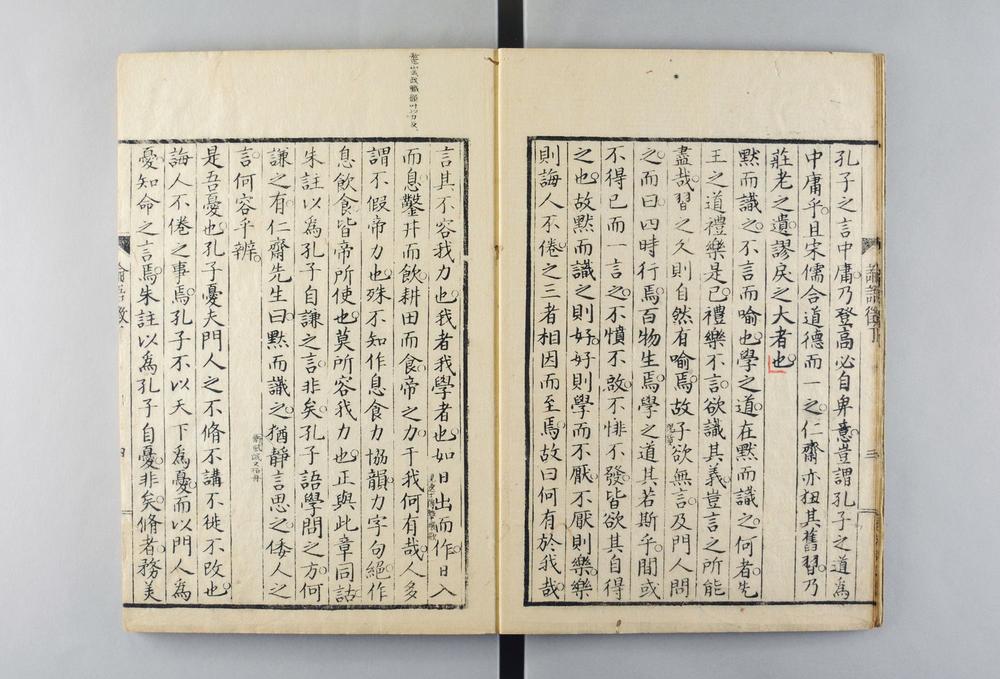 孔子之言中庸乃登高必自卑意豈謂孔子之道為
中庸乎且宋儒合道德而一之仁齋亦狃其舊習乃
莊老之遺謬戾之大者也
默而識之不言而喻也學之道在默而識之何者先
王之道禮樂是已禮樂不言欲識其義豈言之所能
盡哉習之久則自然有喻焉故子欲無言及門人問
之而曰四時行焉百物生焉學之道其若斯乎間或
不得已而一言之不憤不啟不悱不發皆欲其自得
之也故默而識之則好好則學而不厭不厭則樂樂
則誨人不倦之三者相因而至焉故曰何有於我哉
論語徵丁
三
言其不容我力也我者我學者也如日出而作日入
而息鑿井而飲耕田而食帝之力于我何有哉人多
謂不假帝力也殊不知作息食力協韻力字句絕作
息飲食皆帝所使也莫所容我力也正與此章同詁
朱註以為孔子自謙之言非矣孔子語學問之方何
謙之有仁齋先生曰默而識之猶靜言思之倭人之
言何容乎辨
是吾憂也孔子憂夫門人之不脩不講不徙不改也
誨人不倦之事焉孔子不以天下為憂而以門人為
憂知命之言焉朱註以為孔子自憂非矣脩者務美
四